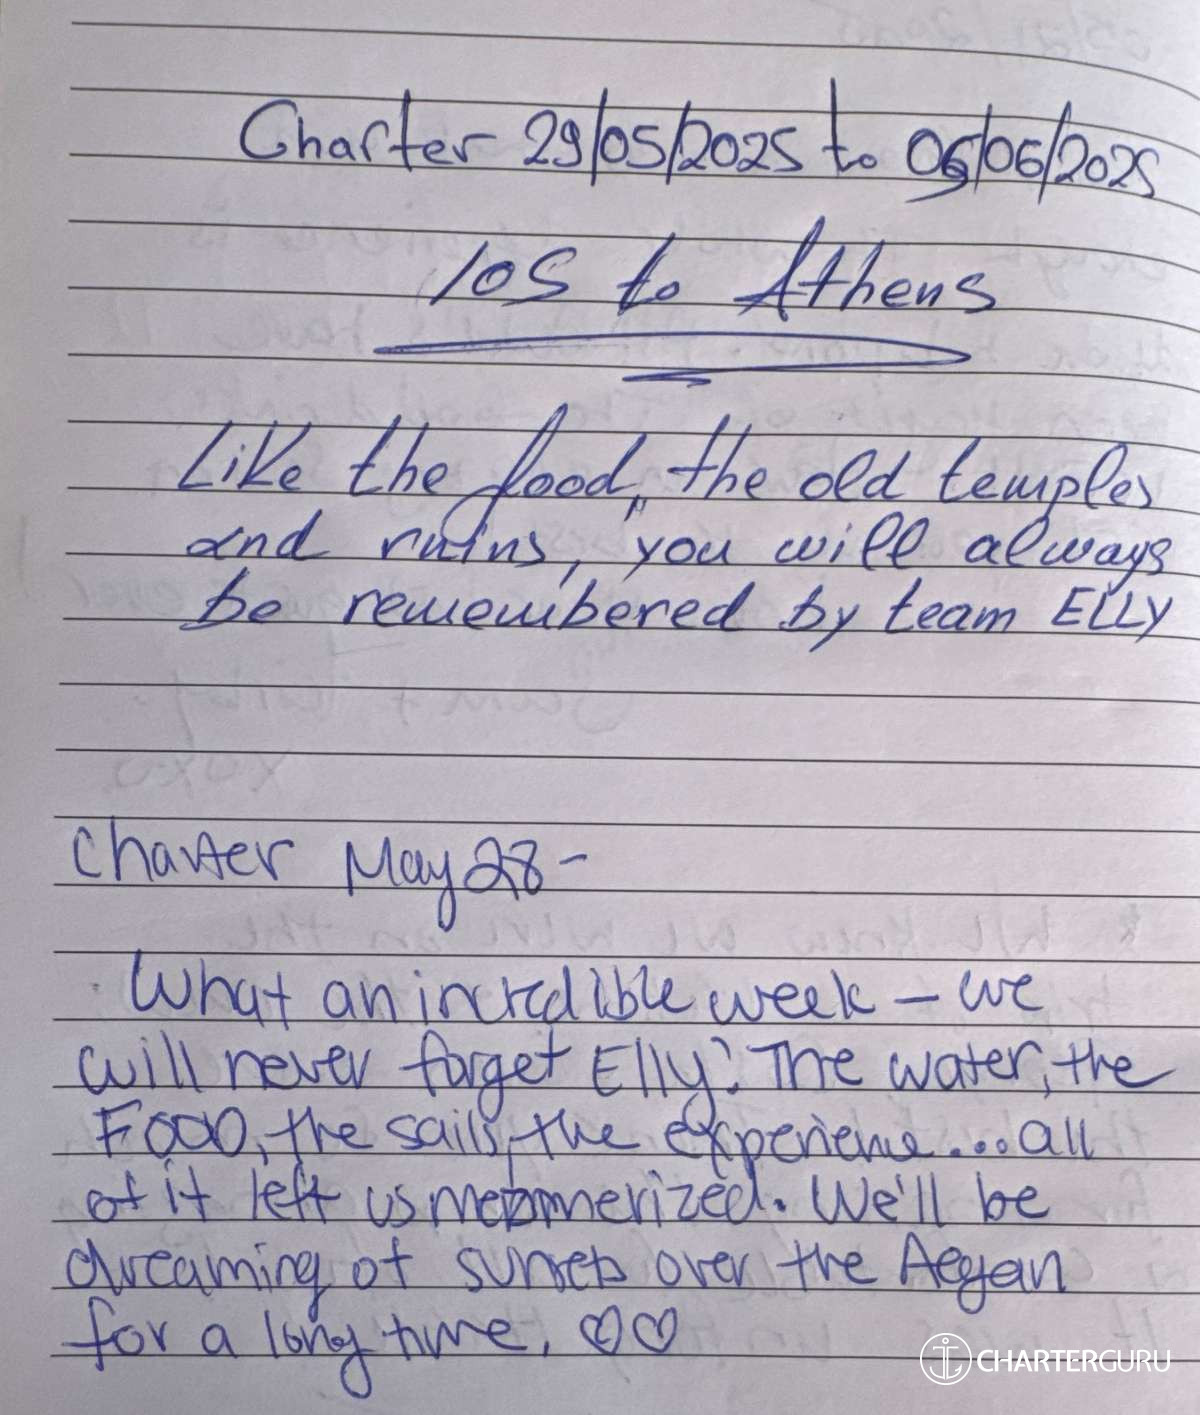 Charter 29/05/2025 to 05/06/2025
IOS to Athens
Like the food, the old temples
and ruins, you will always
be remembered by team ELLY
Charter May 28 -
What an incredible week - we
will never forget Elly! The water, the
FOOD, the sails, the experience... all
of it left us mesmerized. We'll be
dreaming of sunsets over the Aegean
for a long time. ♡♡
CHARTERGURU